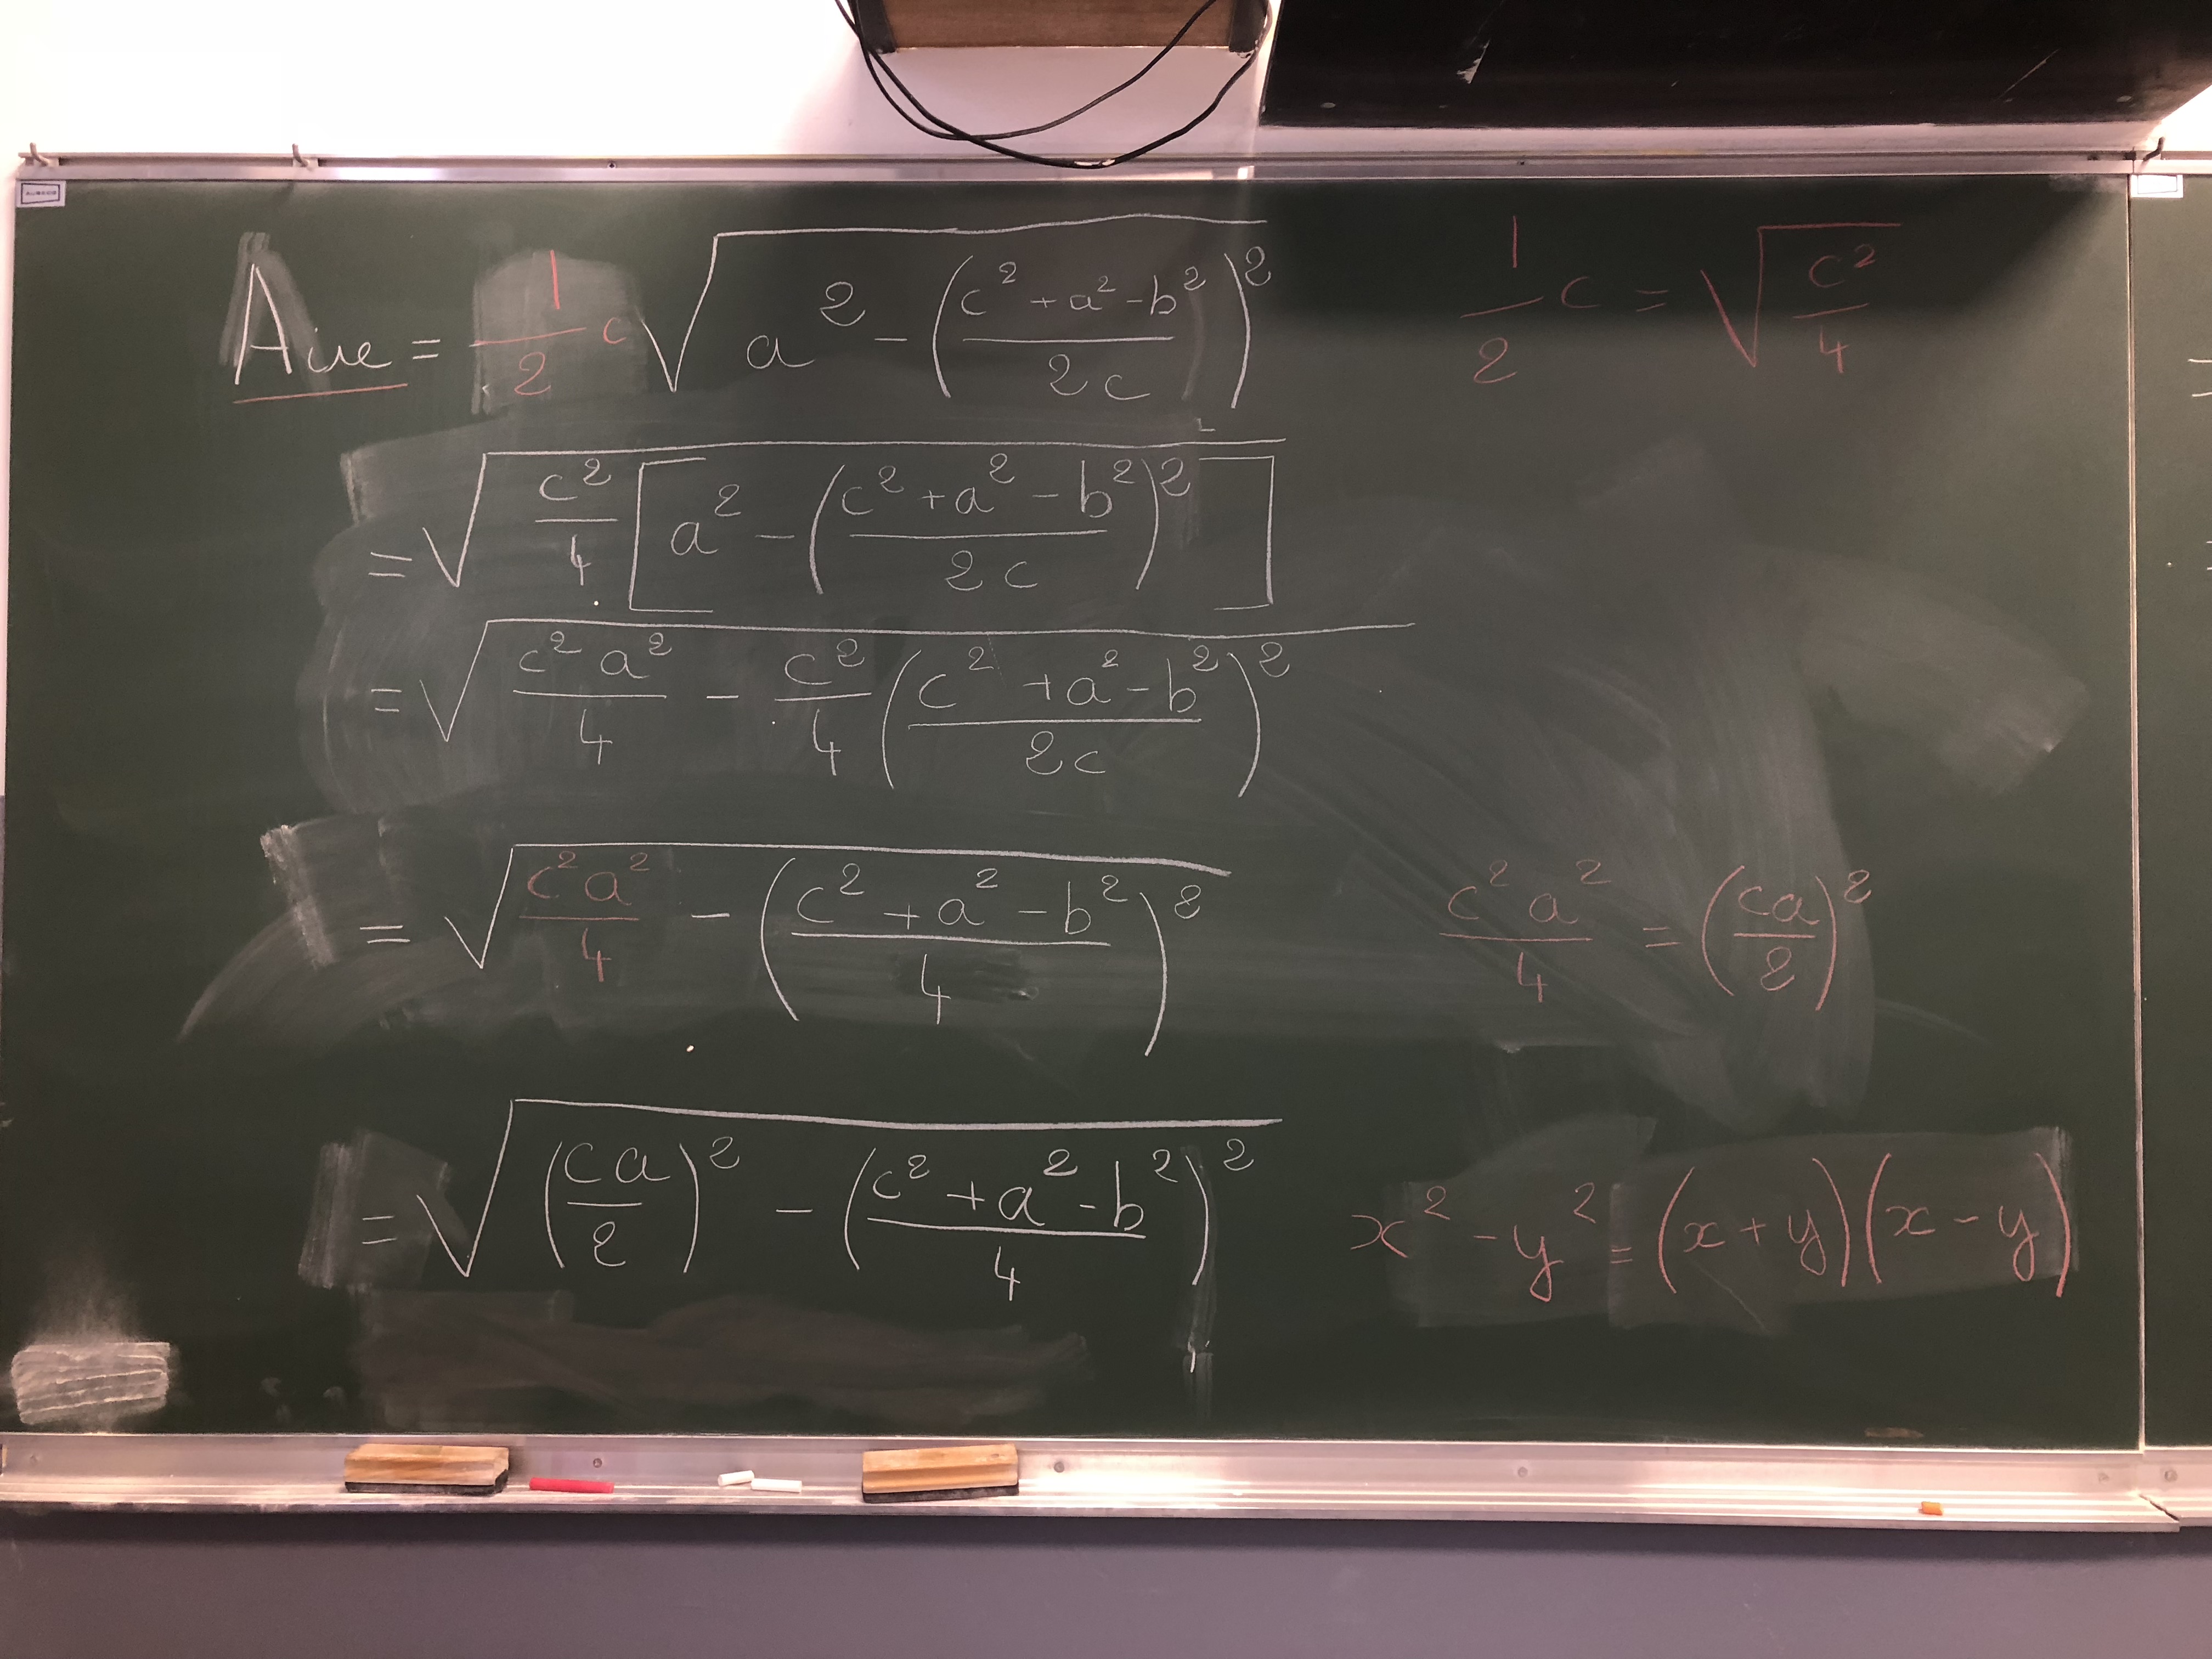 Aire = 1/2 c √(a² - ((c² + a² - b²)/(2c))²)
1/2 c = √(c²/4)
= √(c²/4 [a² - ((c² + a² - b²)/(2c))²])
= √(c² a²/4 - c²/4 ((c² + a² - b²)/(2c))²)
= √(c² a²/4 - ((c² + a² - b²)/4)²)
c² a²/4 = (ca/2)²
= √((ca/2)² - ((c² + a² - b²)/4)²)
x² - y² = (x + y)(x - y)